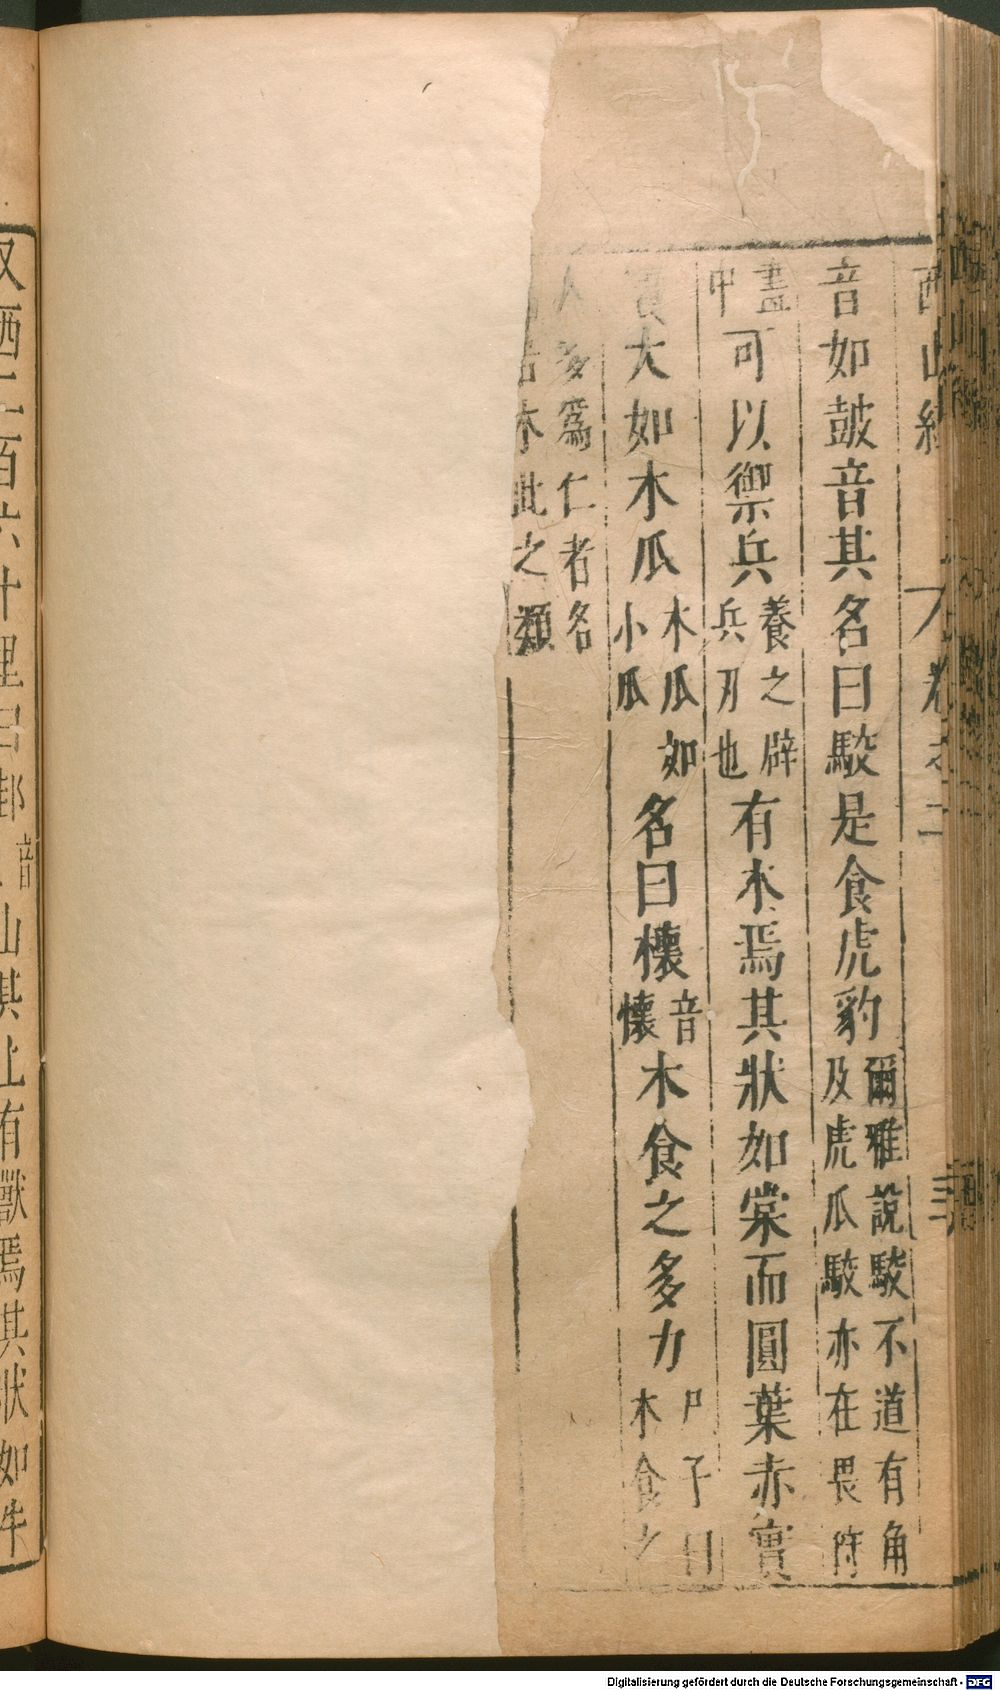 西山經 卷之二 三
音如皷音其名曰駮是食虎豹爾雅說駮不道有角
及虎瓜駮亦在畏
盡
中可以禦兵養之辟
兵刃也有木焉其狀如棠而圓葉赤實
實大如木瓜木瓜如
小瓜名曰櫰音
懷木食之多力尸子曰
木食之
人多爲仁者名
木此之類
又西二百六十里曰邽音山其上有獸焉其狀如牛
Digitalisierung gefördert durch die Deutsche Forschungsgemeinschaft - DFG